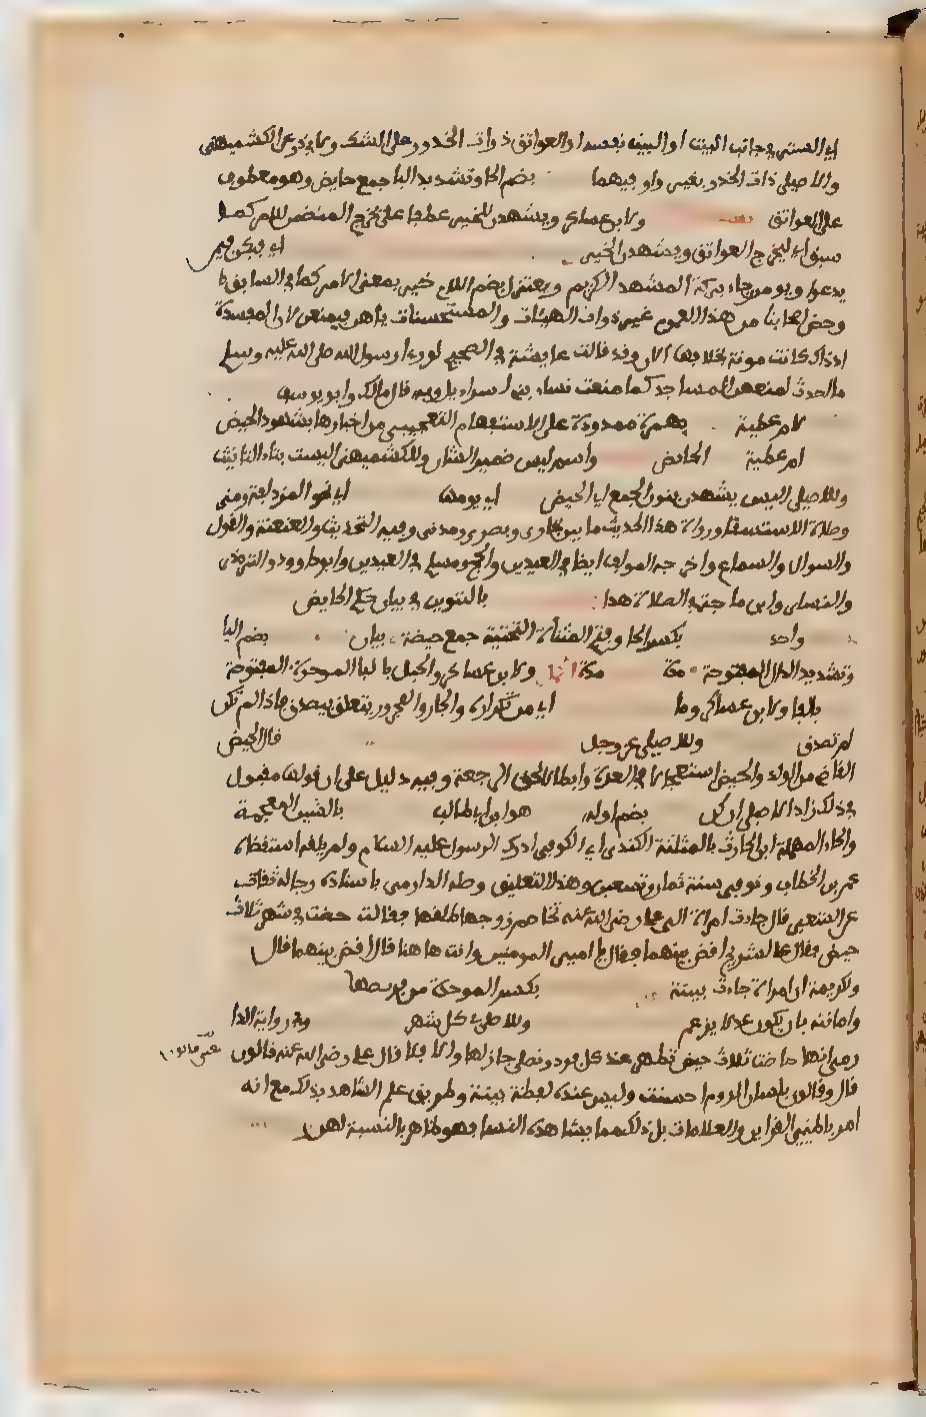 اي الستر في جانب البيت او البيت نفسه او العواتق ذوات الخدور على الشك ولابي ذر عن الكشميهني
والاصيلي ذات الخدر بغير واو فيهما بضم الحا وتشديد اليا جمع حايض وهو معطوف
على العواتق ولابن عساكر ويشهدن الخير عطفا على تخرج المتضمن للامر كما
سبق اي لتخرج العواتق ويشهدن الخير اي فيكن فيمن
يدعوا ويومن رجاء بركة المشهد الكريم ويعتزل بضم اللام خبر بمعنى الامر كما في السابق
وخص اصحابنا من هذا العموم غير ذوات الهيئات والمستحسنات ياهن فيمنعن لان المفسدة
اذ ذاك كانت مونة بخلافها الان وقد قالت عايشة في الصحيح لو راى رسول الله صلى الله عليه وسلم
ما احدث لمنعهن المساجد كما منعت نساء بني اسراءيل وبه قال مالك وابو يوسف
لام عطية بهمزة ممدودة على الاستفهام التعجبي من اخبارها بشهود الحيض
ام عطية الحائض واسم ليس ضمير الشان وللكشميهني اليست بتاء التانيث
وللاصيلي اليس يشهدن بنون الجمع اي الحيض اي يومها اي نحو المزدلفة ومنى
وصلاة الاستسقا ورواة هذا الحديث ما بين بخاري وبصري ومدني وفيه التحديث والعنعنة والقول
والسوال والسماع واخرجه المولف ايضا في العيدين والحج ومسلم في العيدين وابو داوود والترمذي
والنساي وابن ماجة في الصلاة هذا بالتنوين في بيان حكم الحايض
واحد بكسر الحا وفتح المثناة التحتية جمع حيضة بيان بضم اليا
وتشديد الدال المفتوحة مدة ولابن عساكر والحبل بالبا الموحدة المفتوحة
بالفا ولابن عساكر وما اي من تكراره والجار والمجرور يتعلق بيصدق فاذا لم تكن
لم تصدق وللاصيلي عز وجل قال الحيض
القاضي من الولد والحيض استعجالا في العدة وابطالا لحق الرجعة وفيه دليل على ان قولها مقبول
في ذلك زاد الاصيلي ان كن بضم اوله هو ابن ابي طالب بالشين المعجمة
والحاء المهملة ابن الحارث بالمثلثة الكندي ابي الكوفي ادرك الرسول عليه السلام ولم يلقه استقضاه
عمر بن الخطاب وتوفي سنة ثمان وتسعين وهذا التعليق وصله الدارمي باسناده رجاله ثقات
عن الشعبي قال جاءت امراة الى علي رضي الله عنه تخاصم زوجها طلقها فقالت حضت في شهر ثلاث
حيض فقال علي لشريح اقض بينهما فقال يا امير المومنين وانت هاهنا قال اقض بينهما قال
ولكريمة ان امراة جاءت ببينة بكسر الموحدة من
وامانته بان يكون عدلا يزعم وللاصيلي كل شهر وفي رواية الدا
رمي انها حاضت ثلاث حيض تطهر عند كل قرء وتصلي جاز لها والا فلا قال علي رضي الله عنه قالون
قال وقالون بلسان الروم احسنت وليس عنده لفظة بينة وطريق علم الشاهد بذلك مع انه
امر باطني القراين والعلامات بل ذلك مما يشاهده النسا فهو ظاهر بالنسبة لهن